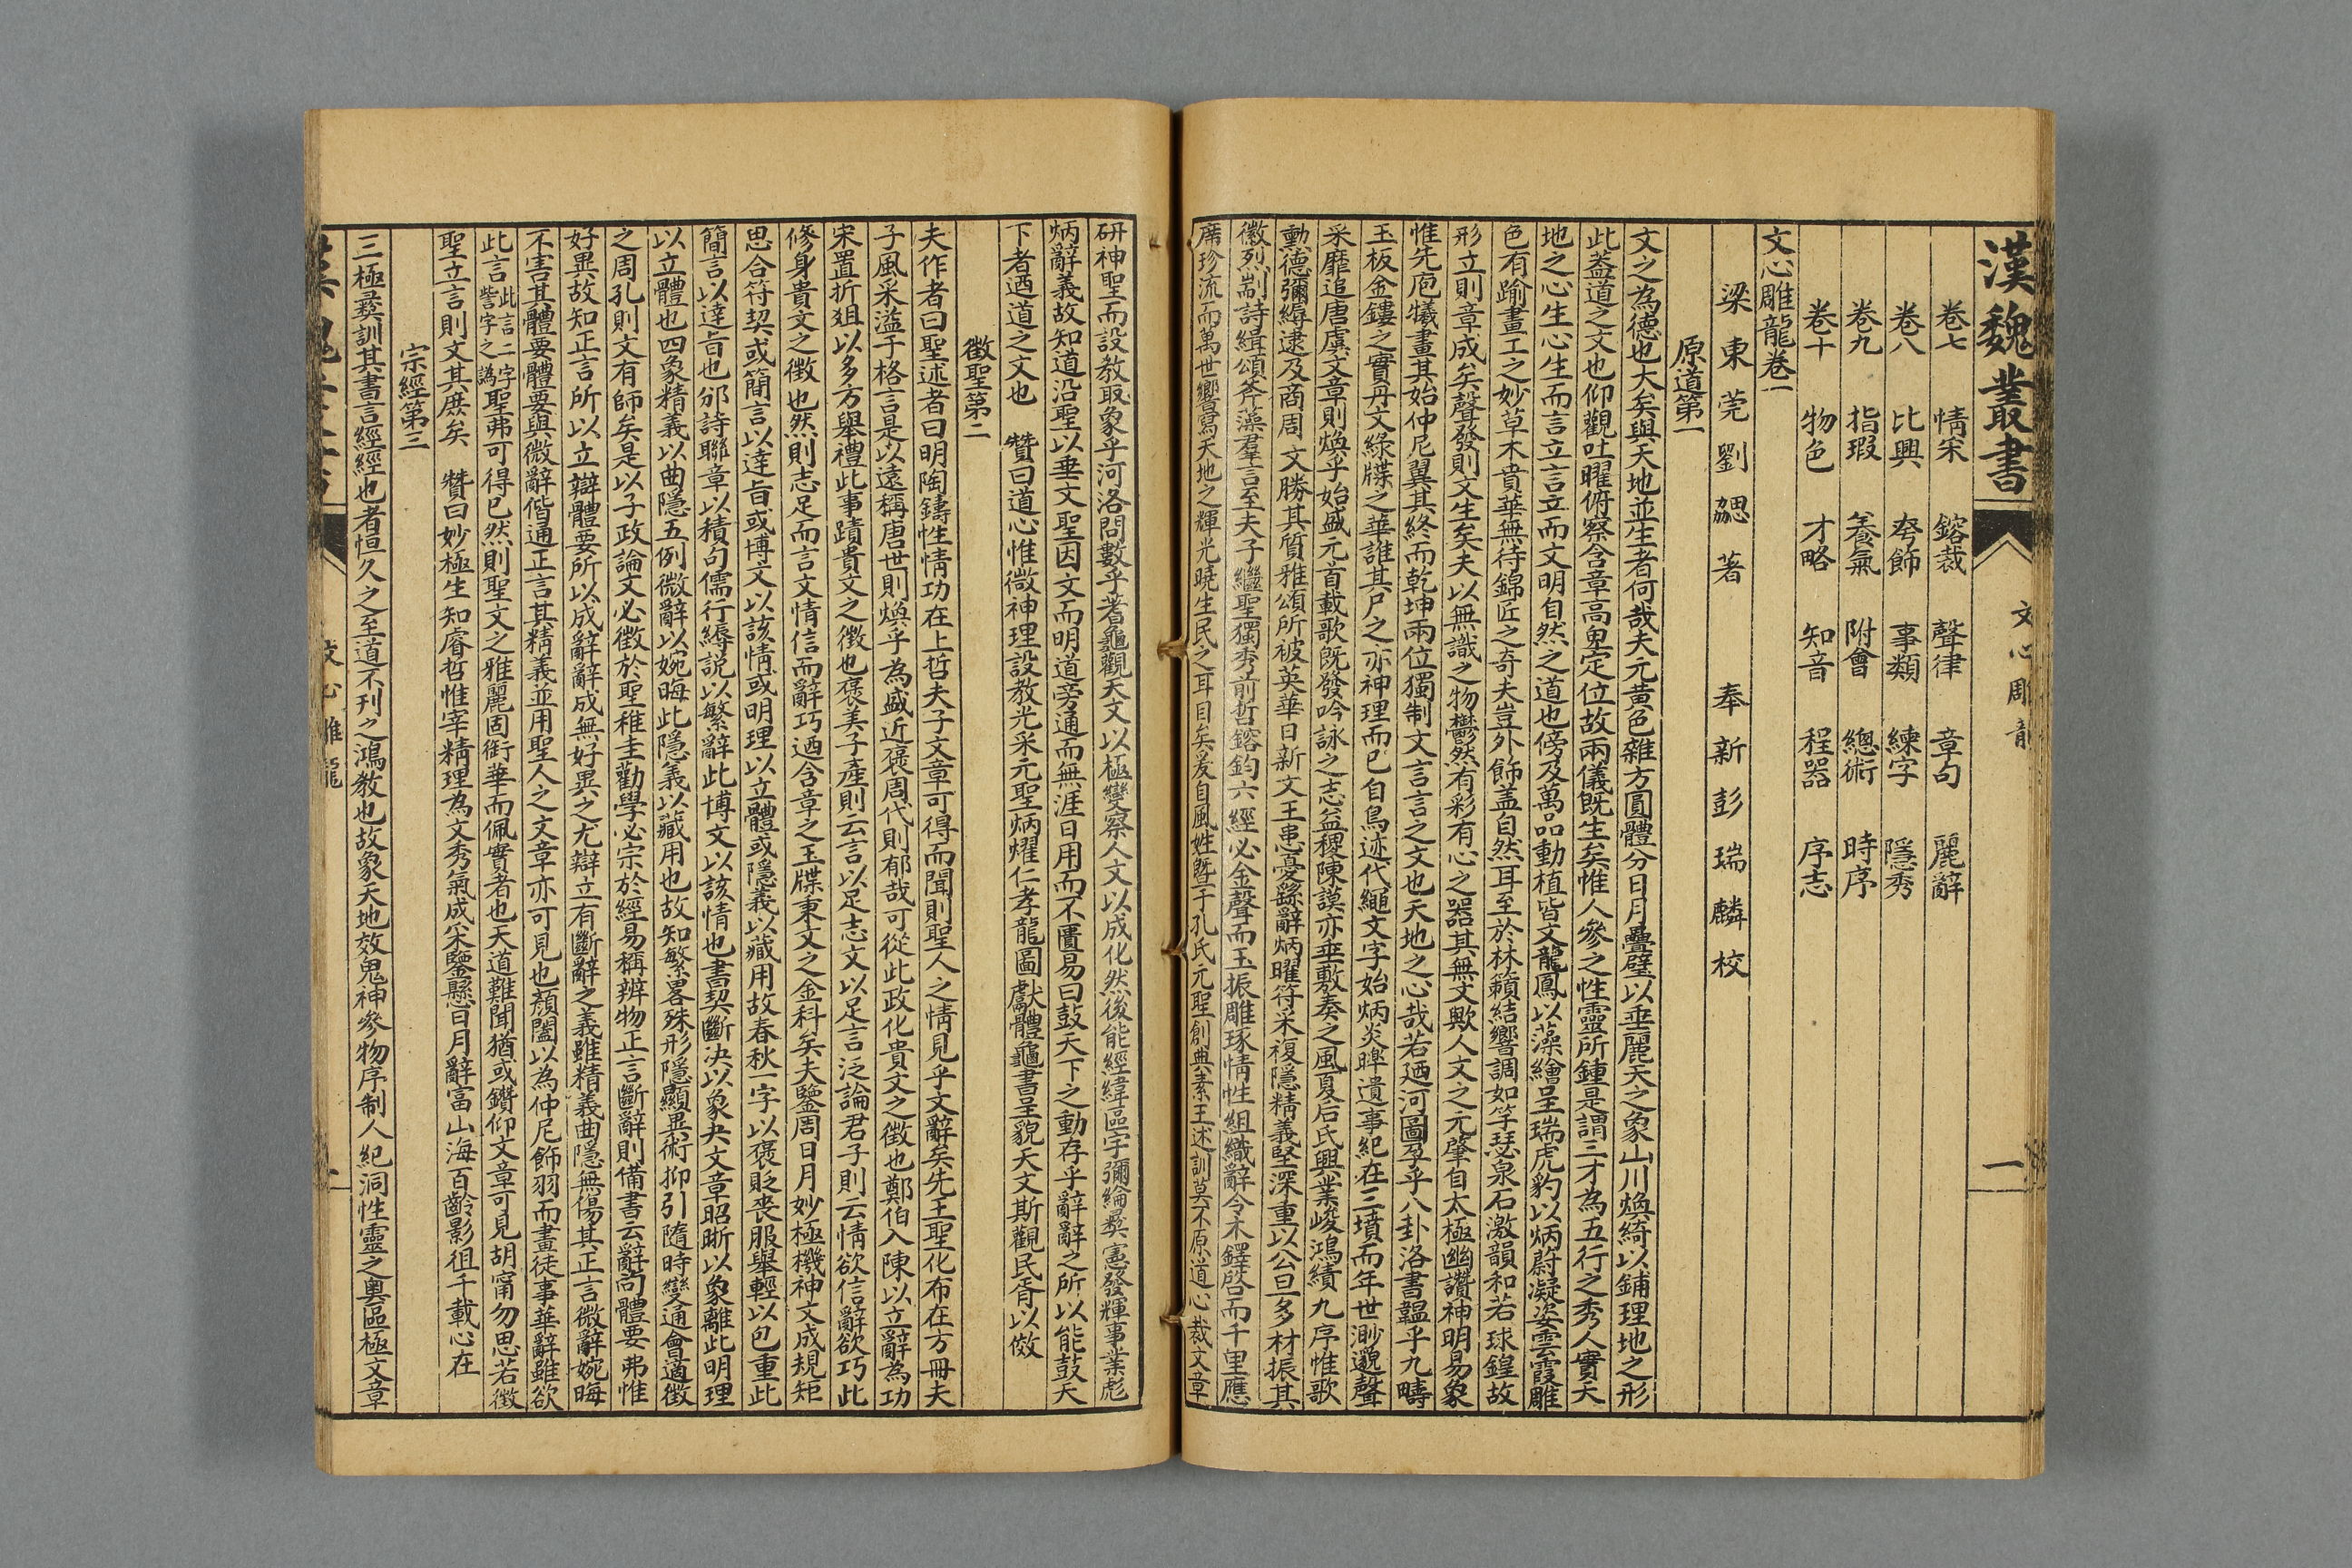 漢魏叢書
文心雕龍
一
卷七 情采 鎔裁 聲律 章句 麗辭
卷八 比興 夸飾 事類 練字 隱秀
卷九 指瑕 養氣 附會 總術 時序
卷十 物色 才略 知音 程器 序志
文心雕龍卷一
梁東莞劉勰著 奉新彭瑞麟校
原道第一
文之為德也大矣與天地並生者何哉夫元黃色雜方圓體分日月疊璧以垂麗天之象山川煥綺以鋪理地之形
此葢道之文也仰觀吐曜俯察含章高卑定位故兩儀既生矣惟人參之性靈所鍾是謂三才為五行之秀人實天
地之心生心生而言立言立而文明自然之道也傍及萬品動植皆文龍鳳以藻繪呈瑞虎豹以炳蔚凝姿雲霞雕
色有踰畫工之妙草木賁華無待錦匠之奇夫豈外飾盖自然耳至於林籟結響調如竽瑟泉石激韻和若球鍠故
形立則章成矣聲發則文生矣夫以無識之物鬱然有彩有心之器其無文歟人文之元肇自太極幽讚神明易象
惟先庖犧畫其始仲尼翼其終而乾坤兩位獨制文言言之文也天地之心哉若廼河圖孕乎八卦洛書韞乎九疇
玉板金鏤之實丹文綠牒之華誰其尸之亦神理而已自鳥迹代繩文字始炳炎皥遺事紀在三墳而年世渺邈聲
采靡追唐虞文章則煥乎始盛元首載歌既發吟詠之志益稷陳謨亦垂敷奏之風夏后氏興業峻鴻績九序惟歌
勳德彌縟逮及商周文勝其質雅頌所被英華日新文王患憂繇辭炳曜符采複隱精義堅深重以公旦多材振其
徽烈剬詩緝頌斧藻羣言至夫子繼聖獨秀前哲鎔鈞六經必金聲而玉振雕琢情性組織辭令木鐸啓而千里應
席珍流而萬世響寫天地之輝光曉生民之耳目矣爰自風姓曁于孔氏元聖創典素王述訓莫不原道心裁文章
研神聖而設教取象乎河洛問數乎蓍龜觀天文以極變察人文以成化然後能經緯區宇彌綸彝憲發輝事業彪
炳辭義故知道沿聖以垂文聖因文而明道旁通而無涯日用而不匱易曰鼓天下之動存乎辭辭之所以能鼓天
下者迺道之文也 贊曰道心惟微神理設教光采元聖炳燿仁孝龍圖獻體龜書呈貌天文斯觀民胥以傚
徵聖第二
夫作者曰聖述者曰明陶鑄性情功在上哲夫子文章可得而聞則聖人之情見乎文辭矣先王聖化布在方冊夫
子風采溢于格言是以遠稱唐世則煥乎為盛近褒周代則郁哉可從此政化貴文之徵也鄭伯入陳以立辭為功
宋置折俎以多方舉禮此事蹟貴文之徵也褒美子產則云言以足志文以足言泛論君子則云情欲信辭欲巧此
修身貴文之徵也然則志足而言文情信而辭巧迺含章之玉牒秉文之金科矣夫鑒周日月妙極機神文成規矩
思合符契或簡言以達旨或博文以該情或明理以立體或隱義以藏用故春秋一字以褒貶喪服舉輕以包重此
簡言以達旨也邠詩聯章以積句儒行縟説以繁辭此博文以該情也書契斷決以象夬文章昭晰以象離此明理
以立體也四象精義以曲隱五例微辭以婉晦此隱義以藏用也故知繁畧殊形隱顯異術抑引隨時變通會適徵
之周孔則文有師矣是以子政論文必徵於聖稚圭勸學必宗於經易稱辨物正言斷辭則備書云辭尚體要弗惟
好異故知正言所以立辯體要所以成辭辭成無好異之尤辯立有斷辭之義雖精義曲隱無傷其正言微辭婉晦
不害其體要體要與微辭偕通正言其精義並用聖人之文章亦可見也顏闔以為仲尼飾羽而畫徒事華辭雖欲
此言此言二字訾字之譌聖弗可得已然則聖文之雅麗固銜華而佩實者也天道難聞猶或鑽仰文章可見胡甯勿思若徵
聖立言則文其庶矣 贊曰妙極生知睿哲惟宰精理為文秀氣成采鑒懸日月辭富山海百齡影徂千載心在
宗經第三
三極彝訓其書言經經也者恒久之至道不刊之鴻教也故象天地效鬼神參物序制人紀洞性靈之奧區極文章
文心雕龍